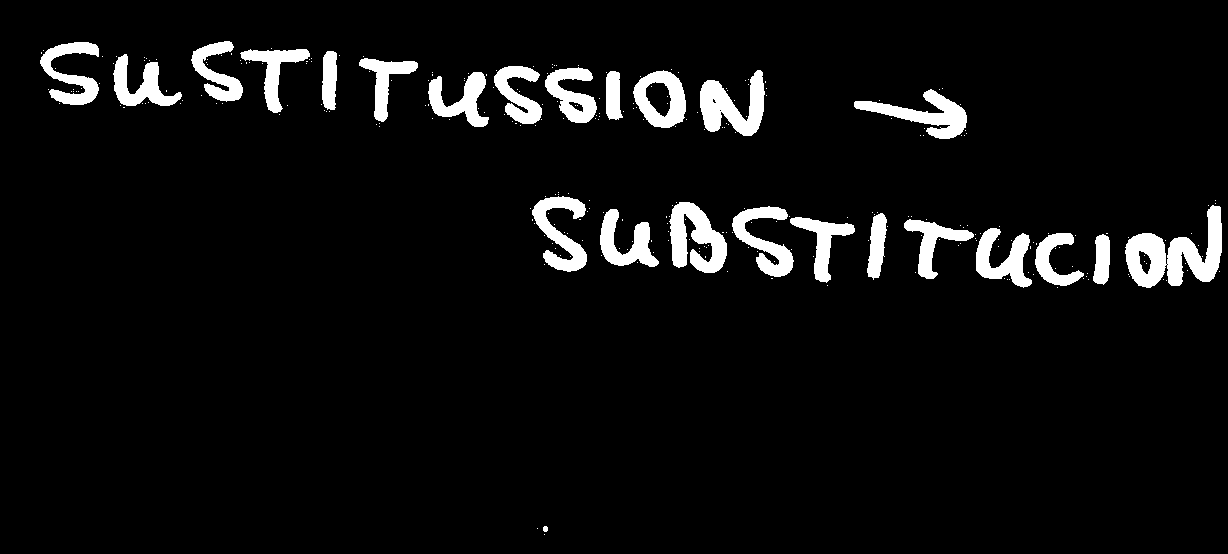 SUSTITUSSION →
SUBSTITUCION